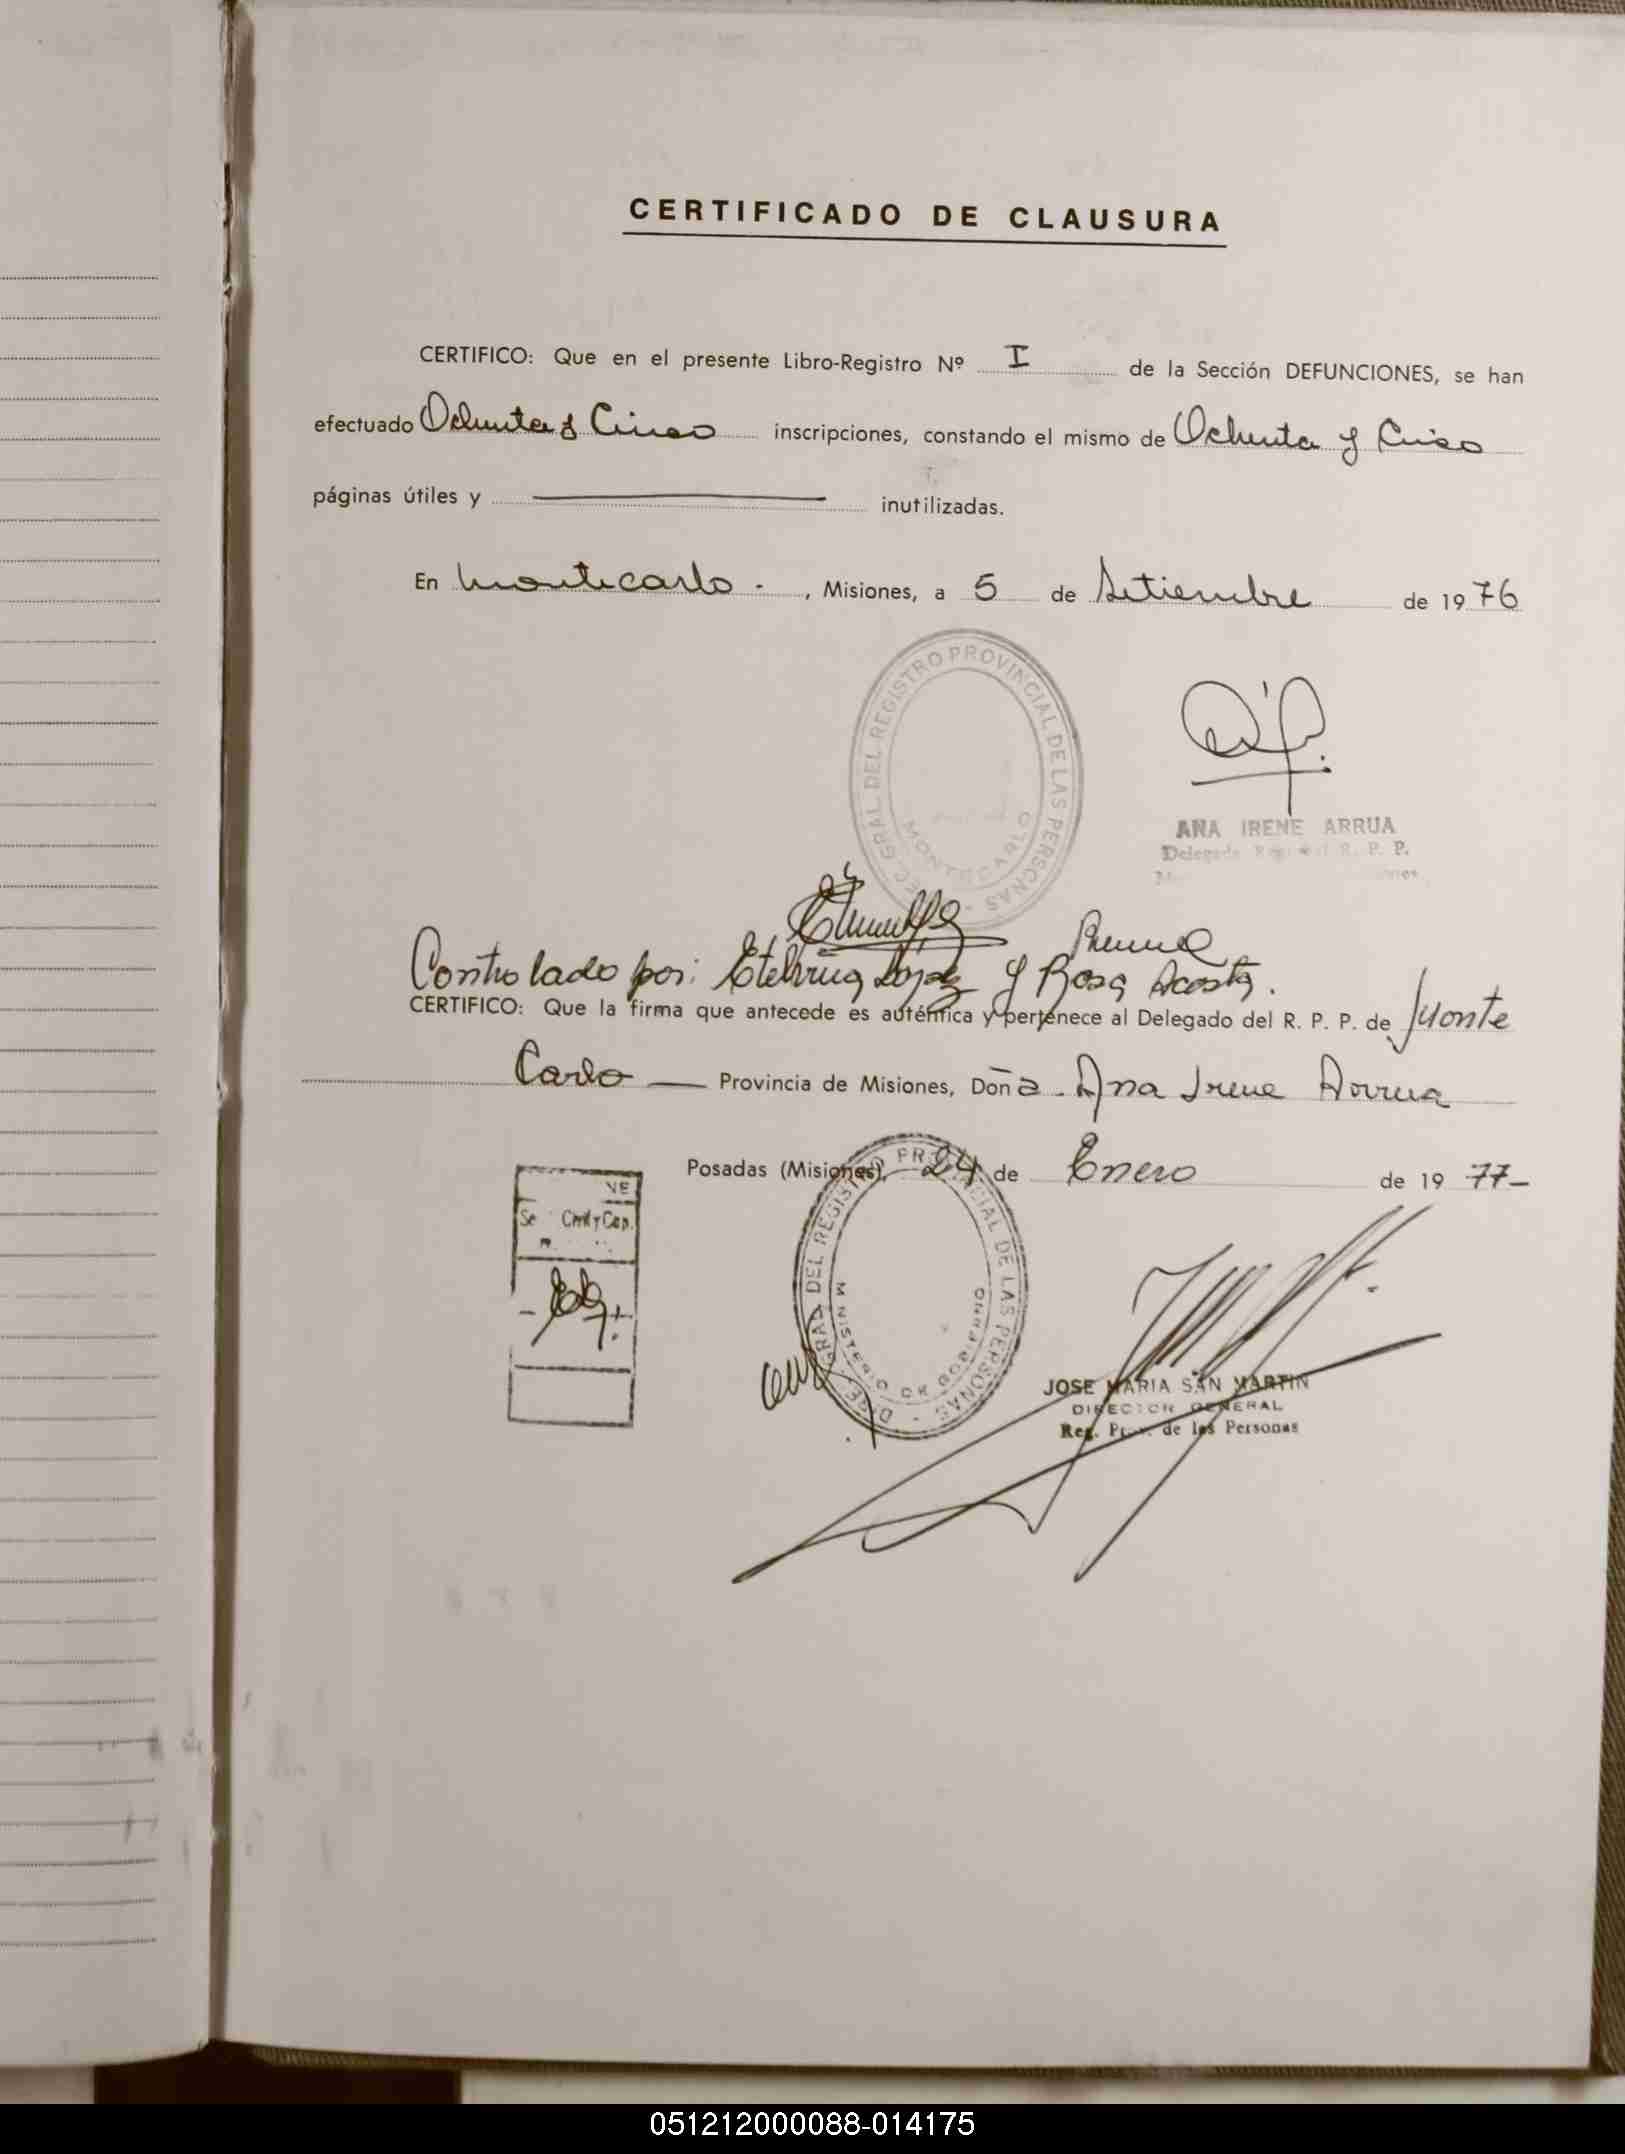 CERTIFICADO DE CLAUSURA
CERTIFICO: Que en el presente Libro-Registro Nº I de la Sección DEFUNCIONES, se han
efectuado Ochenta y Cinco inscripciones, constando el mismo de Ochenta y Cinco
páginas útiles y inutilizadas.
En Montecarlo - , Misiones, a 5 de Setiembre de 1976
GRAL DEL REGISTRO PROVINCIAL DE LAS PERSONAS -
MONTECARLO
ANA IRENE ARRUA
Delegada R. P. P.
Controlado por: Etelvina López y Rosa Acosta.
CERTIFICO: Que la firma que antecede es auténtica y pertenece al Delegado del R. P. P. de Monte
Carlo — Provincia de Misiones, Doña - Ana Irene Arrua
Posadas (Misiones), 24 de Enero de 1977-
VE
Se Cap.
GRAL DEL REGISTRO PROVINCIAL DE LAS PERSONAS -
MINISTERIO DE GOBIERNO
JOSE MARIA SAN MARTIN
DIRECTOR GENERAL
Reg. Prov. de las Personas
051212000088-014175